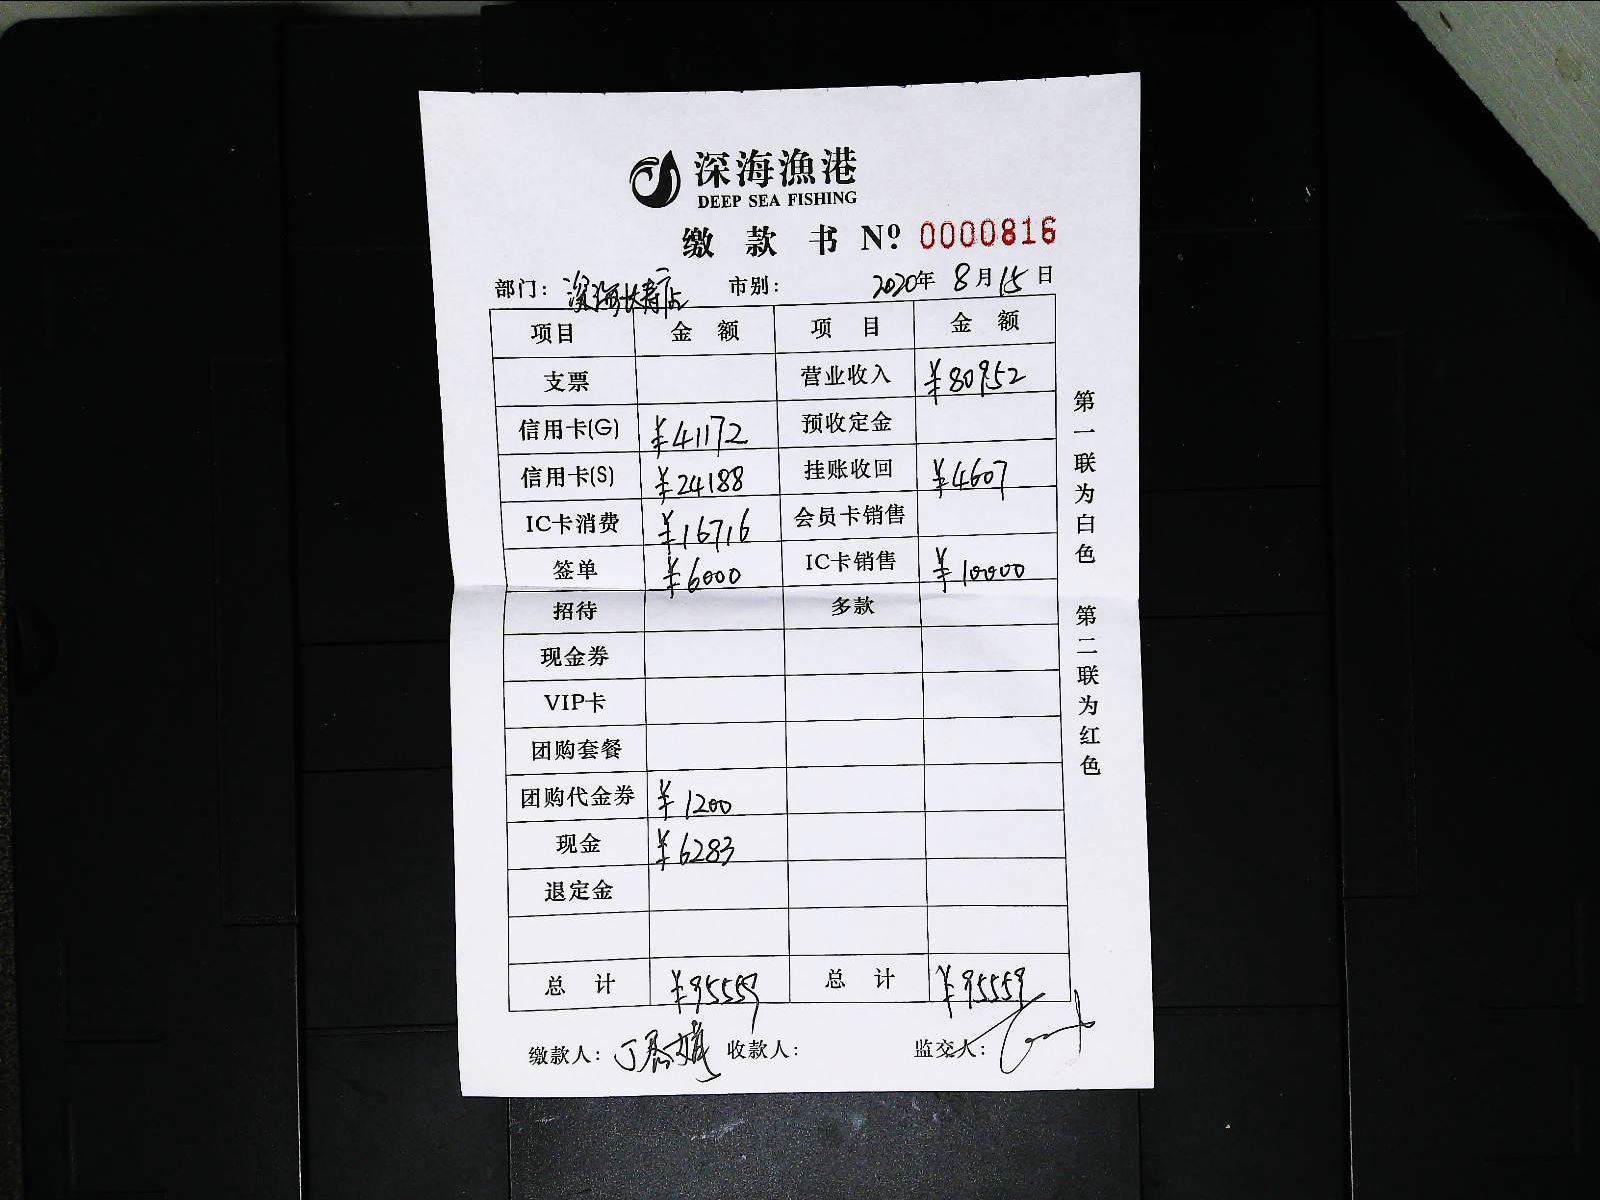 深海漁港
DEEP SEA FISHING
缴款书 Nº 0000816
部门：深海长寿店 市别： 2020年8月15日
项目 金额 项目 金额
支票 营业收入 ¥80952
信用卡(G) ¥41172 预收定金
信用卡(S) ¥24188 挂账收回 ¥4607
IC卡消费 ¥16716 会员卡销售
签单 ¥6000 IC卡销售 ¥10000
招待 多款
现金券
VIP卡
团购套餐
团购代金券 ¥1200
现金 ¥6283
退定金
总计 ¥95559 总计 ¥95559
缴款人：丁 收款人： 监交人：
第一联为白色 第二联为红色